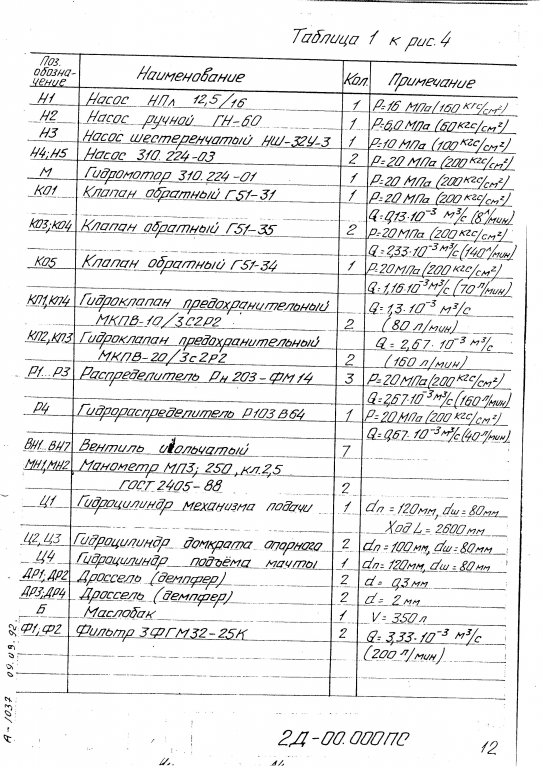 Таблица 1 к рис. 4
Поз. обозна- чение Наименование Кол. Примечание
Н1 Насос НПл 12,5/16 1 Р=16 МПа (160 кгс/см²)
Н2 Насос ручной ГН-60 1 Р=6,0 МПа (60 кгс/см²)
Н3 Насос шестеренчатый НШ-32У-3 1 Р=10 МПа (100 кгс/см²)
Н4; Н5 Насос 310.224-03 2 Р=20 МПа (200 кгс/см²)
М Гидромотор 310.224-01 1 Р=20 МПа (200 кгс/см²)
КО1 Клапан обратный Г51-31 1 Р=20 МПа (200 кгс/см²)
Q=0,13·10⁻³ м³/с (8 л/мин)
КО3; КО4 Клапан обратный Г51-35 2 Р=20 МПа (200 кгс/см²)
Q=2,33·10⁻³ м³/с (140 л/мин)
КО5 Клапан обратный Г51-34 1 Р=20 МПа (200 кгс/см²)
Q=1,16·10⁻³ м³/с (70 л/мин)
КП1, КП4 Гидроклапан предохранительный Q=1,3·10⁻³ м³/с
МКПВ-10/3С2Р2 2 (80 л/мин)
КП2, КП3 Гидроклапан предохранительный Q=2,67·10⁻³ м³/с
МКПВ-20/3С2Р2 2 (160 л/мин)
Р1...Р3 Распределитель Рн 203-ФМ14 3 Р=20 МПа (200 кгс/см²)
Q=2,67·10⁻³ м³/с (160 л/мин)
Р4 Гидрораспределитель Р103 В64 1 Р=20 МПа (200 кгс/см²)
Q=0,67·10⁻³ м³/с (40 л/мин)
ВН1...ВН7 Вентиль игольчатый 7
МН1, МН2 Манометр МП3; 250, кл. 2,5
ГОСТ 2405-88 2
Ц1 Гидроцилиндр механизма подачи 1 dп=120мм, dш=80мм
Ход L=2600мм
Ц2, Ц3 Гидроцилиндр домкрата опорного 2 dп=100мм, dш=80мм
Ц4 Гидроцилиндр подъёма мачты 1 dп=120мм, dш=80мм
ДР1, ДР2 Дроссель (демпфер) 2 d=0,3 мм
ДР3, ДР4 Дроссель (демпфер) 2 d=2 мм
Б Маслобак 1 V=350 л
Ф1, Ф2 Фильтр 3ФГМ32-25К 2 Q=3,33·10⁻³ м³/с
(200 л/мин)
А-1037 09.09.92.
2Д-00.000ПС 12